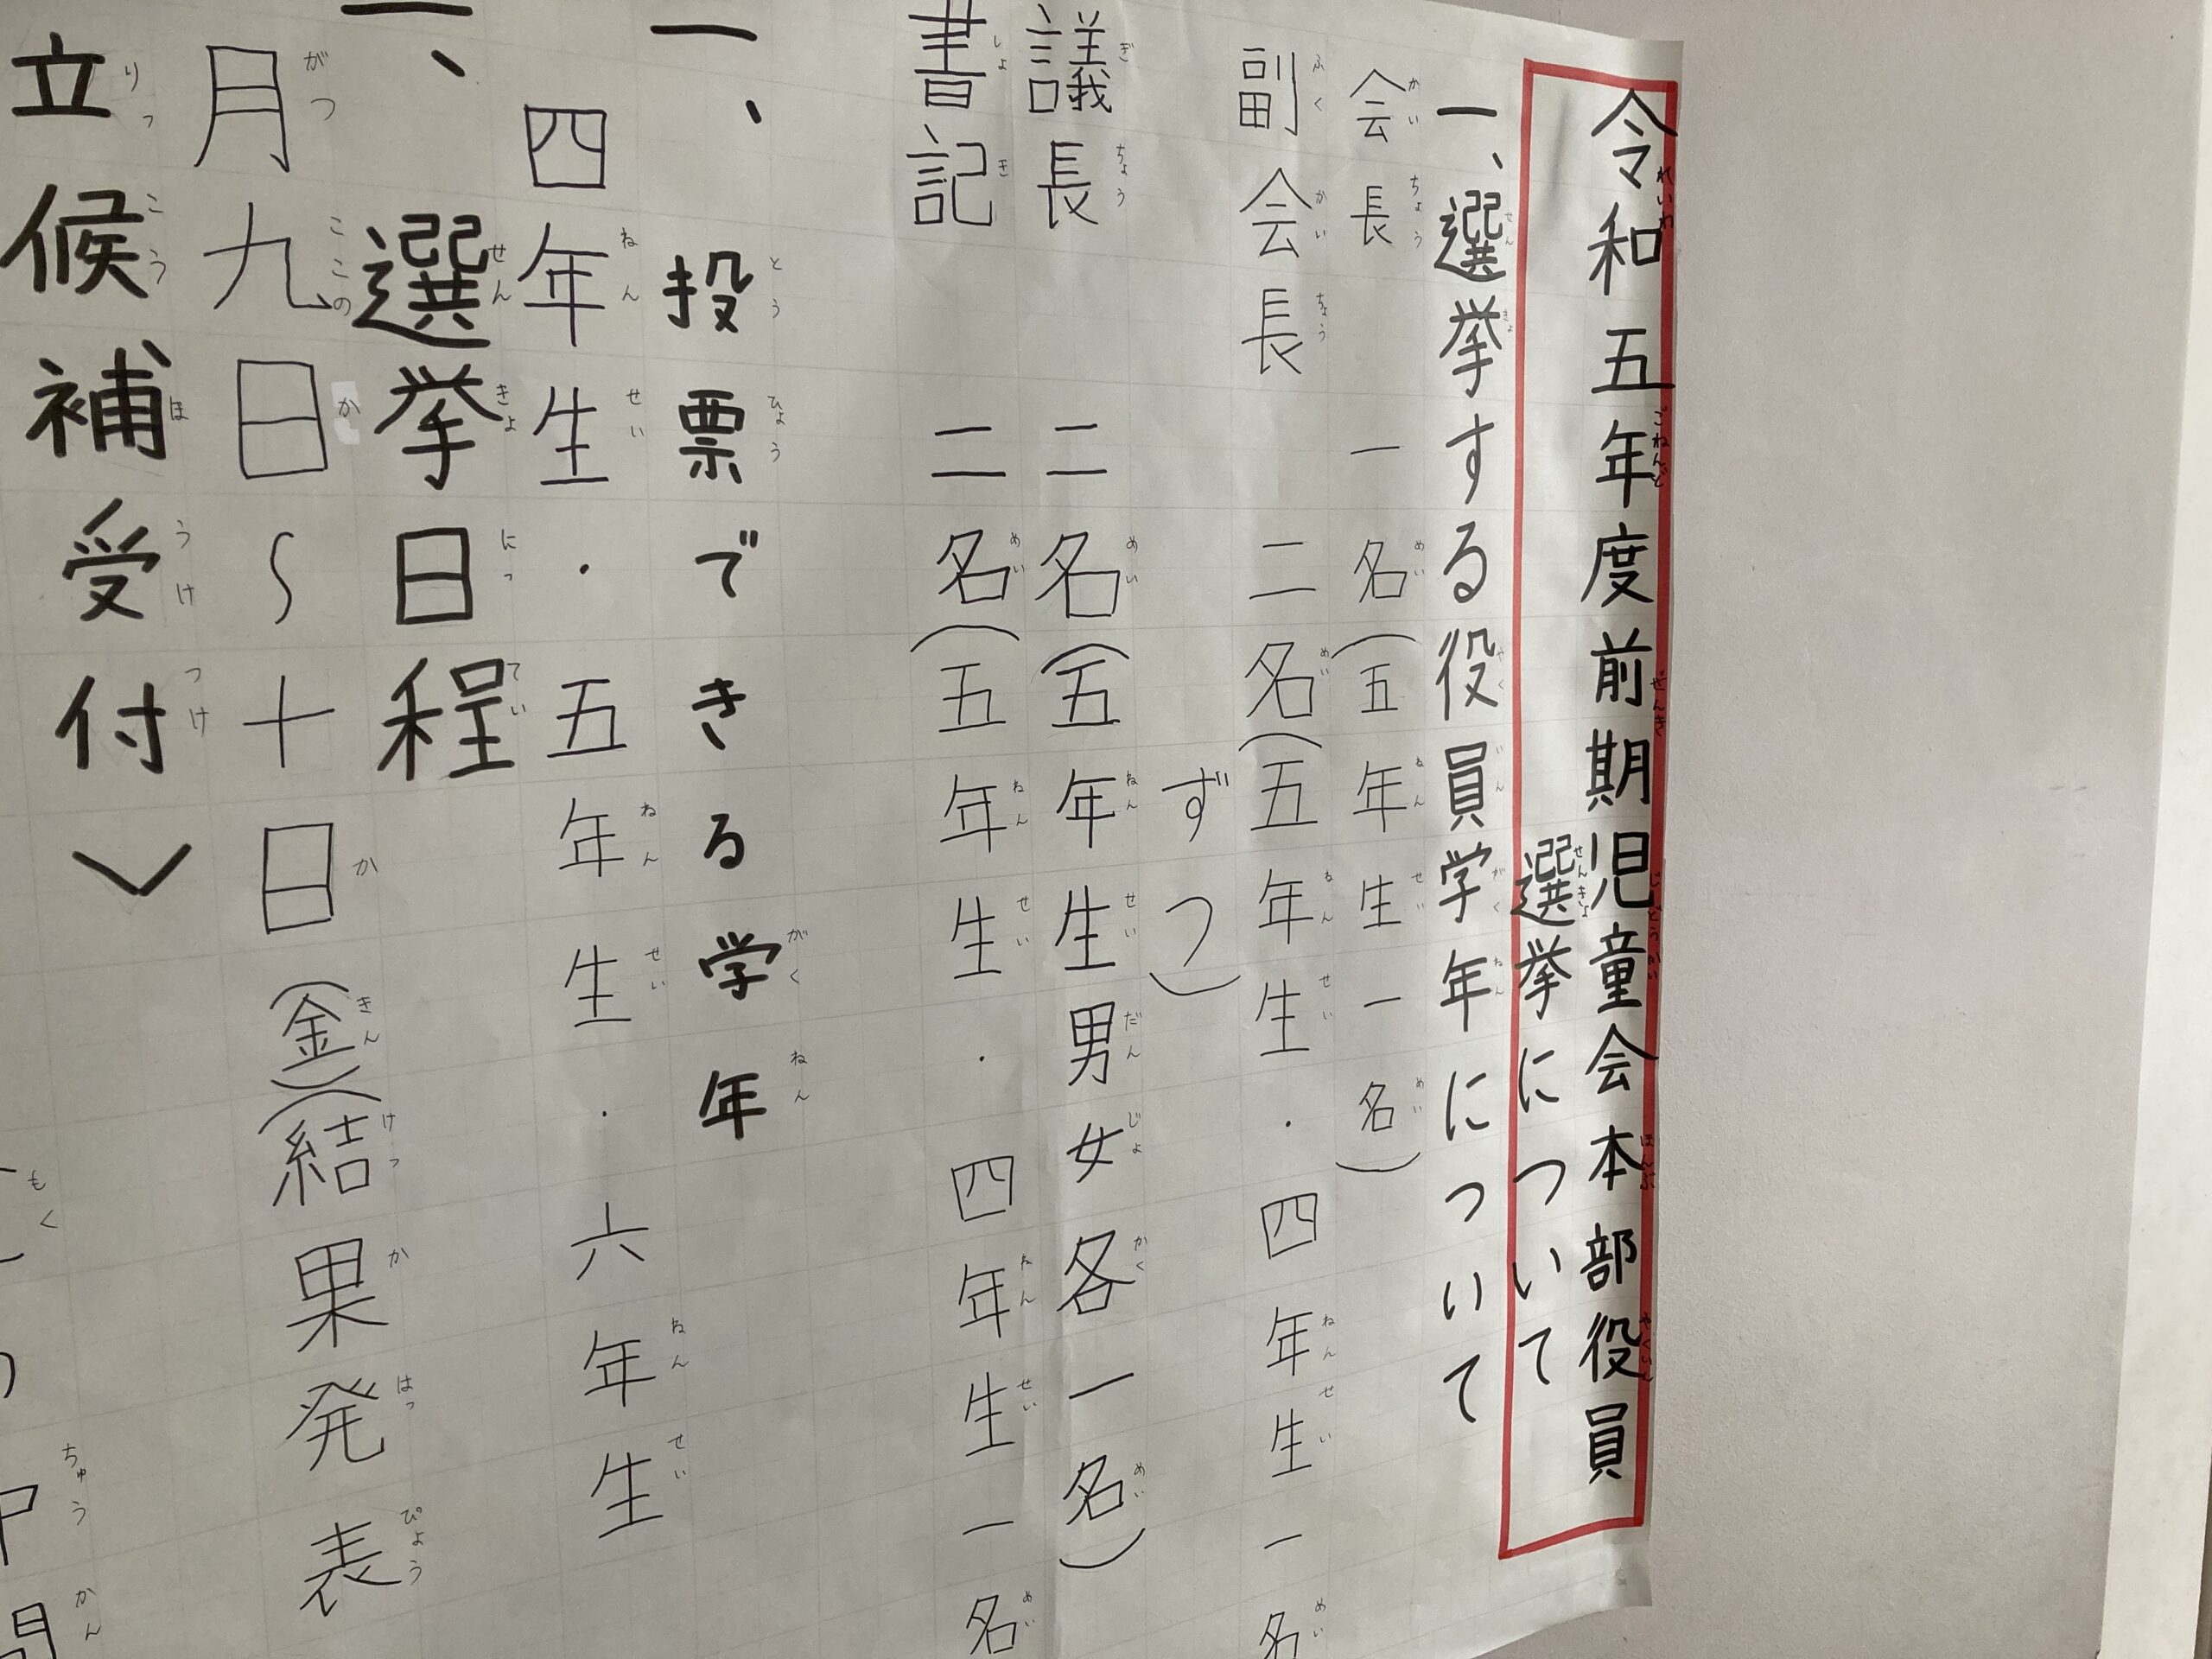 令和五年度前期児童会本部役員
選挙について
一、選挙する役員学年について
会長 一名(五年生一名)
副会長 二名(五年生・四年生一名
ずつ)
議長 二名(五年生男女各一名)
書記 二名(五年生・四年生一名
一、投票できる学年
四年生・五年生・六年生
一、選挙日程
月九日〜十日(金)(結果発表
立候補受付〉